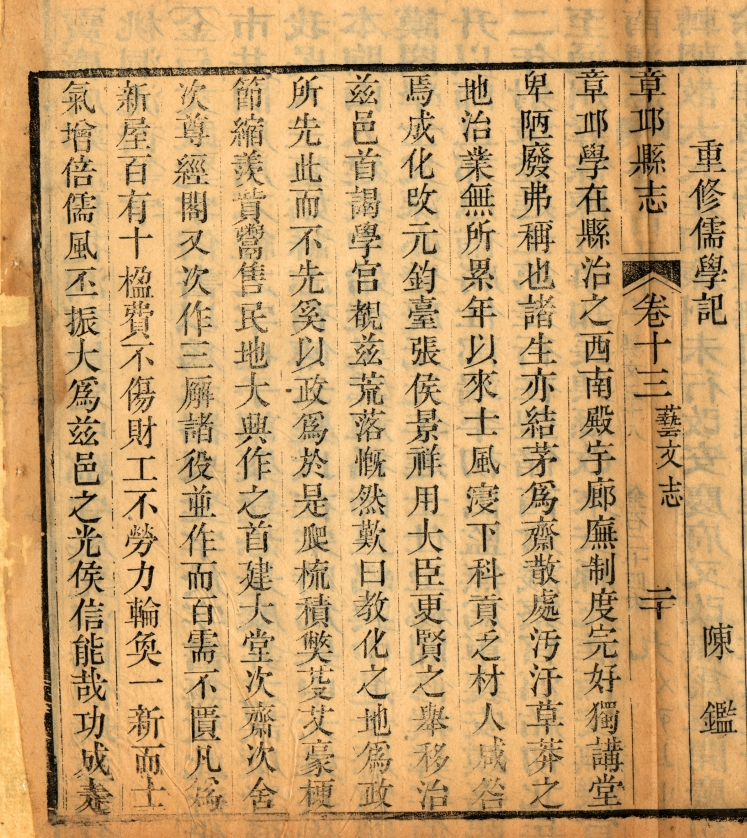 重修儒學記 陳鑑
章邱縣志 卷十三 藝文志 二十
章邱學在縣治之西南殿宇廊廡制度完好獨講堂
卑陋廢弗稱也諸生亦結茅爲齋散處汚汙草莽之
地治業無所累年以來士風寖下科貢乏材人咸咎
焉成化改元鈞臺張侯景祥用大臣更賢之舉移治
兹邑首謁學官覩兹荒落慨然歎曰教化之地爲政
所先此而不先奚以政爲於是爬梳積獘芟艾豪梗
節縮羨貲鬻售民地大興作之首建大堂次齋次舍
次尊經閣又次作三廨諸役並作而百需不匱凡爲
新屋百有十楹費不傷財工不勞力輪奐一新而士
氣增倍儒風丕振大爲兹邑之光侯信能哉功成走